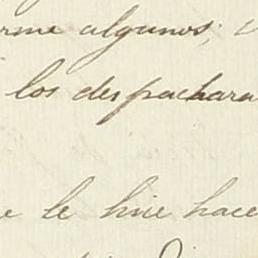 rme algunos; 
los despachara
e le hice hace